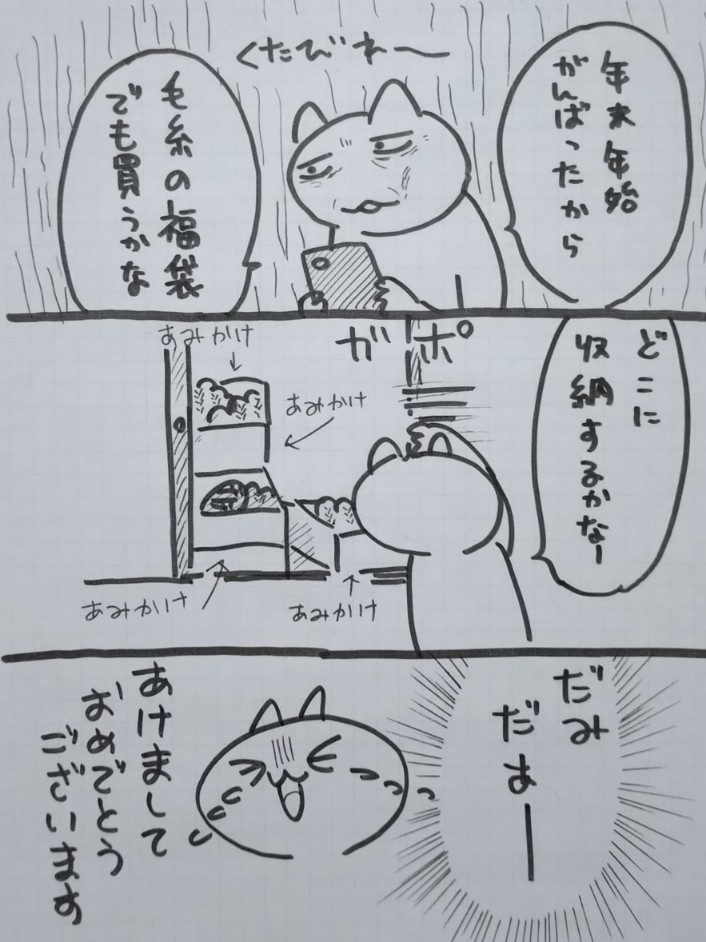 年末年始
がんばったから
くたびれ〜
毛糸の福袋
でも買うかな
どこに
収納するかなー
ガポ
あみかけ
あみかけ
あみかけ
あみかけ
だみ
だぁー
あけまして
おめでとう
ございます